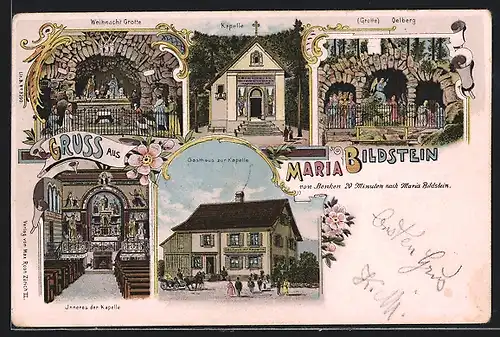 Weihnacht Grotte
Kapelle
(Grotte) Oelberg
GRUSS AUS
MARIA BILDSTEIN
Gasthaus zur Kapelle
von Benken 20 Minuten nach Maria Bildstein.
Inneres der Kapelle
Verlag von Max Roon Zürich III.